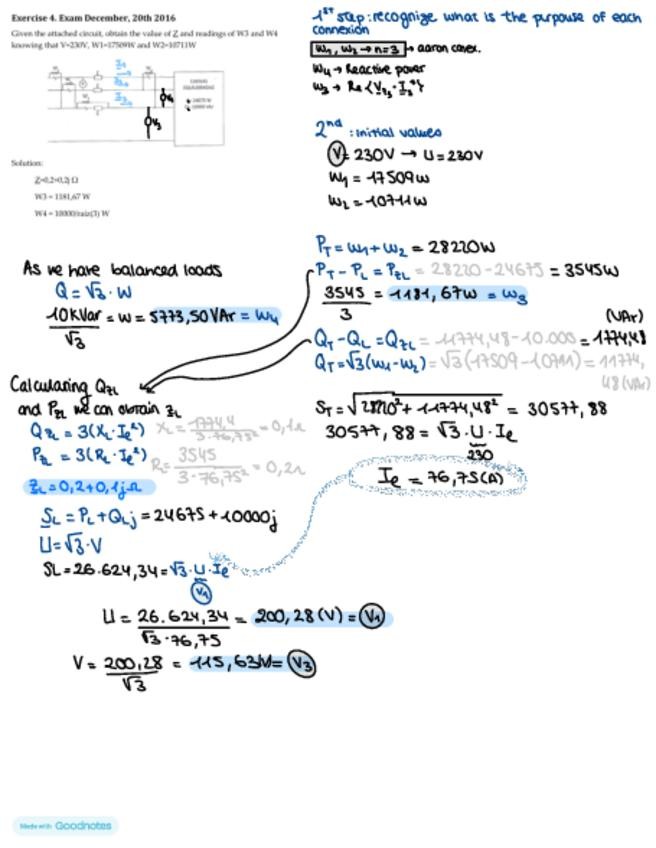 Exercise 4. Exam December, 20th 2016
Given the attached circuit, obtain the value of Z and readings of W3 and W4
knowing that V=230V, W1=17509W and W2=10711W
I1
I2
I3
V1
V3
Solution:
Z=0,2+0,2j Ω
W3 = 1181,67 W
W4 = 10000/raiz(3) W
1st step: recognize what is the purpouse of each
connexion
W1, W2 → n=3 → aaron conex.
W4 → Reactive power
W3 → Re {
2nd : initial values
V = 230V → U = 230V
W1 = 17509W
W2 = 10711W
As we have balanced loads
Q = √3 · W
10KVar/√3 = W = 5773,50VAr = W4
PT = W1 + W2 = 28220W
PT - PL = PZL = 28220 - 24675 = 3545W
3545/3 = 1181,67W = W3
(VAr)
QT - QL = QZL = 11774,48 - 10.000 = 1774,48
QT = √3(W1 - W2) = √3(17509 - 10711) = 11774,
48 (VAr)
ST = √28220² + 11774,48² = 30577,88
30577,88 = √3 · U · Ie
230
Ie = 76,75(A)
Calculating QZL
and PZL we can obtain ZL
QZL = 3(XL · Ie²) XL = 1774,4/3·76,75² = 0,1Ω
PZL = 3(RL · Ie²) R = 3545/3·76,75² = 0,2Ω
ZL = 0,2 + 0,1j Ω
SL = PL + QLj = 24675 + 10000j
U = √3 · V
SL = 26.624,34 = √3 · U · Ie
V1
U = 26.624,34/√3·76,75 = 200,28 (V) = V1
V = 200,28/√3 = 115,63V = V3
Made with Goodnotes